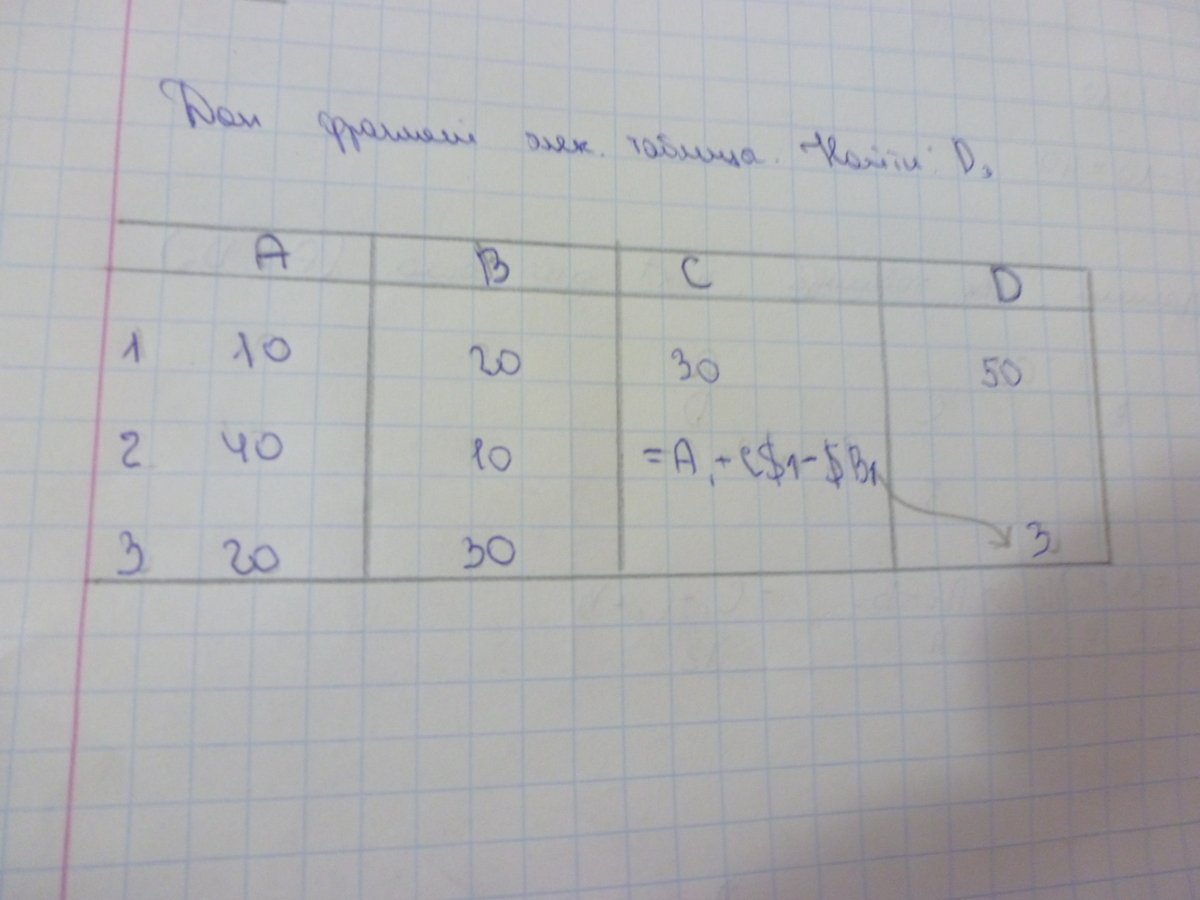 Дан фрагмент элек. таблица. Найти: D₃
A B C D
1 10 20 30 50
2 40 10 =A₁+C$1-$B1
3 20 30 3